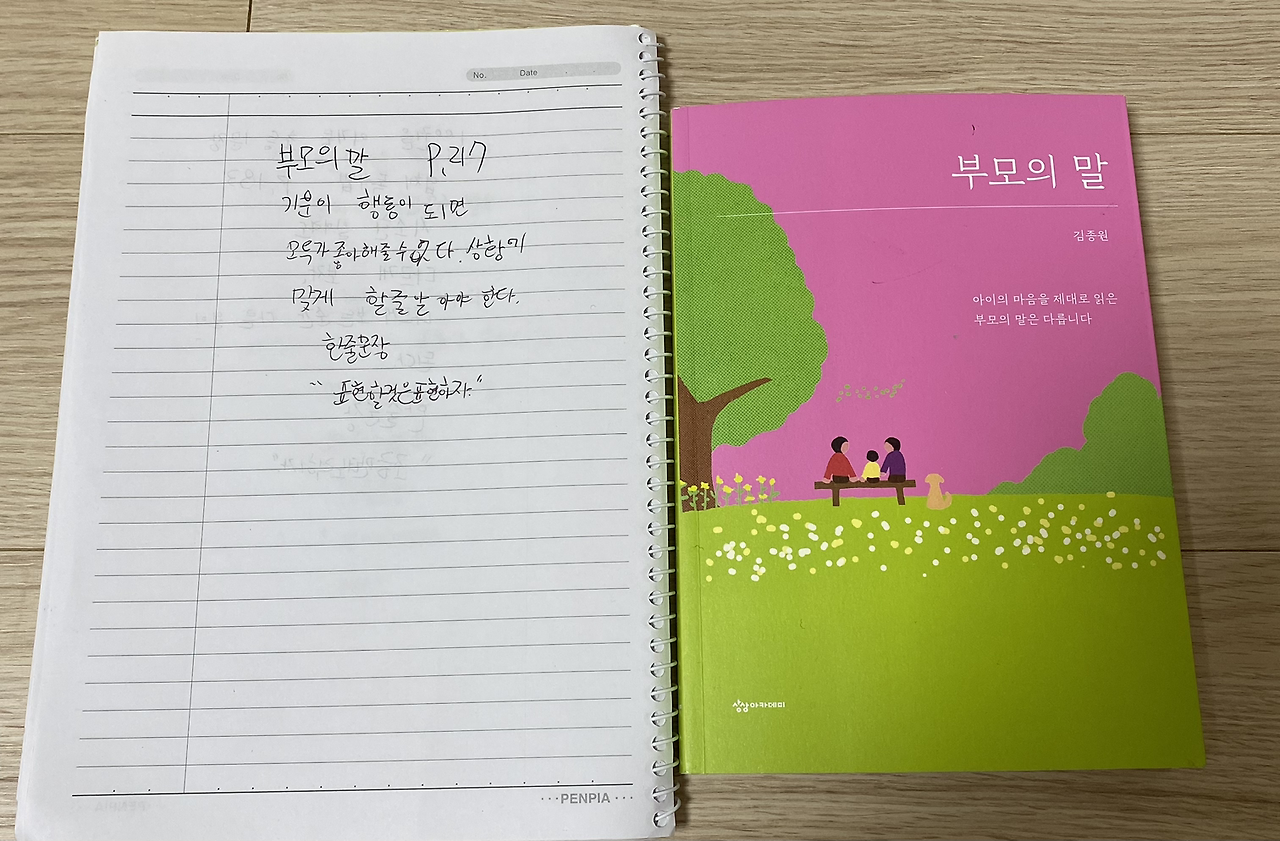 No. Date
부모의 말 P.217
기운이 행동이 되면
모두가 좋아해줄수 없다. 상황에
맞게 할줄 알아야 한다.
한줄문장
"표현할것은표현하자."
···PENPIA···
부모의 말
김종원
아이의 마음을 제대로 읽은
부모의 말은 다릅니다
상상아카데미